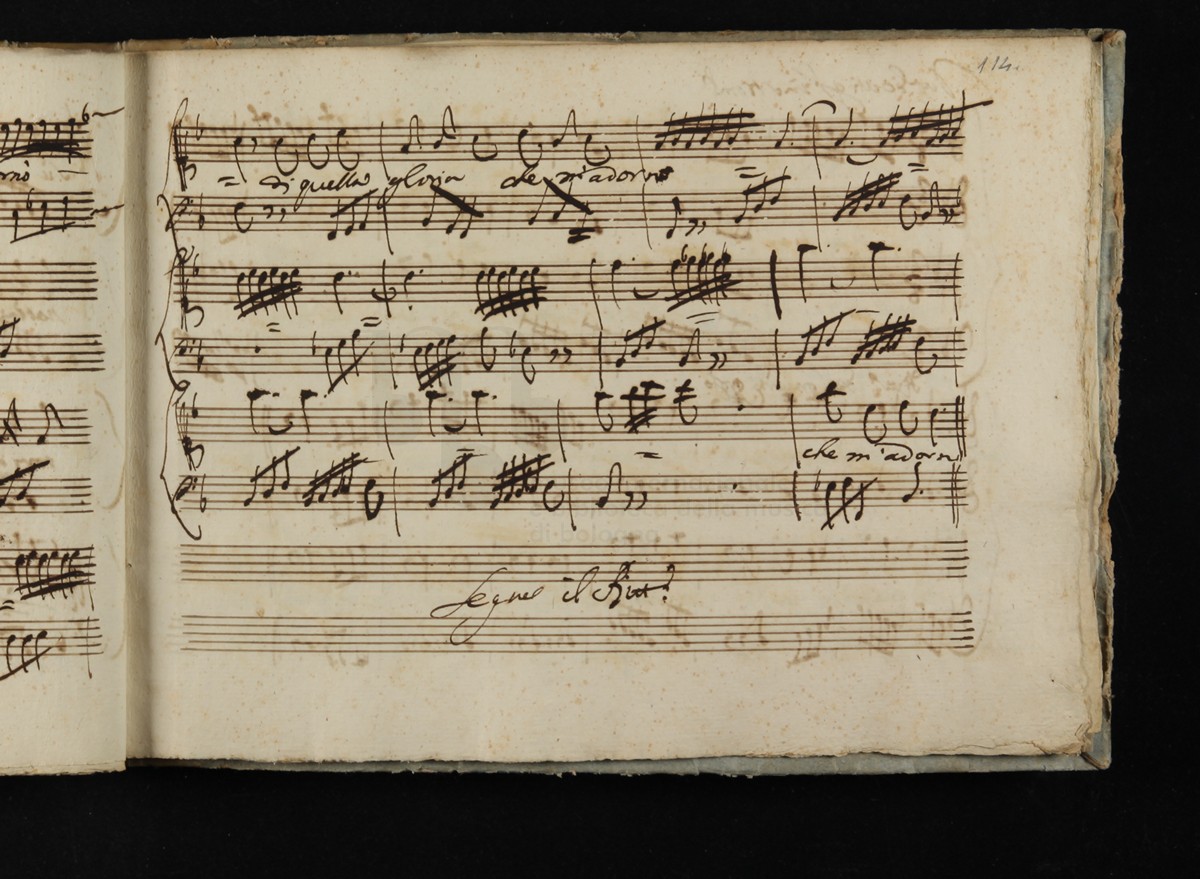 114.
rnò
= di quella gloria che m'adorno =
che m'adorn
Segue il Rit.º